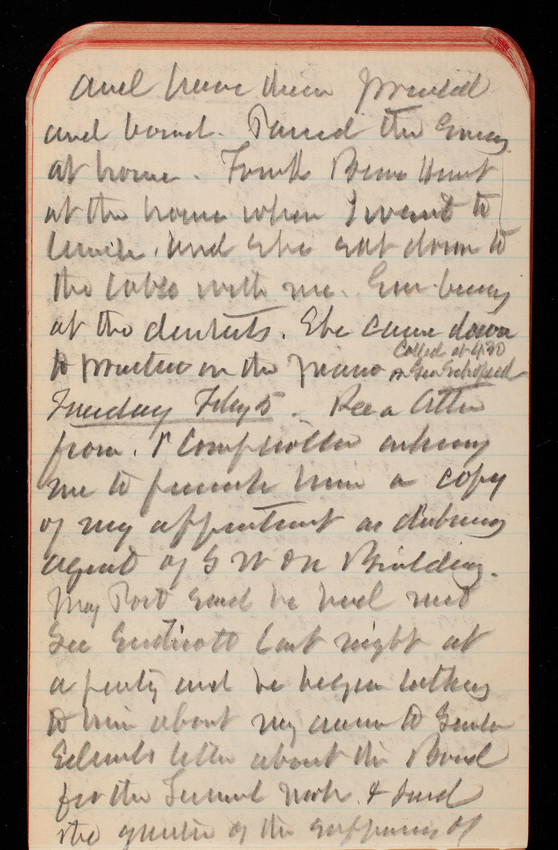 and have them printed
and bound. Passed the Evening
at home. Found Miss Hunt
at the house when I went to
lunch. and she sat down to
the table with me. Em being
at the dentists. She came down
to practice on the piano
Called at 4.30
Tuesday Feby 5. Rec a letter
from. Comptroller asking
me to furnish him a copy
of my appointment as disbursing
agent of S W & N Building.
May Post said he had met
Sec Endicott last night at
a party and he began talking
to him about my answer to Senator
Edmunds letter about the Board
for the Tunnel Work. & said
the question of the suffering of